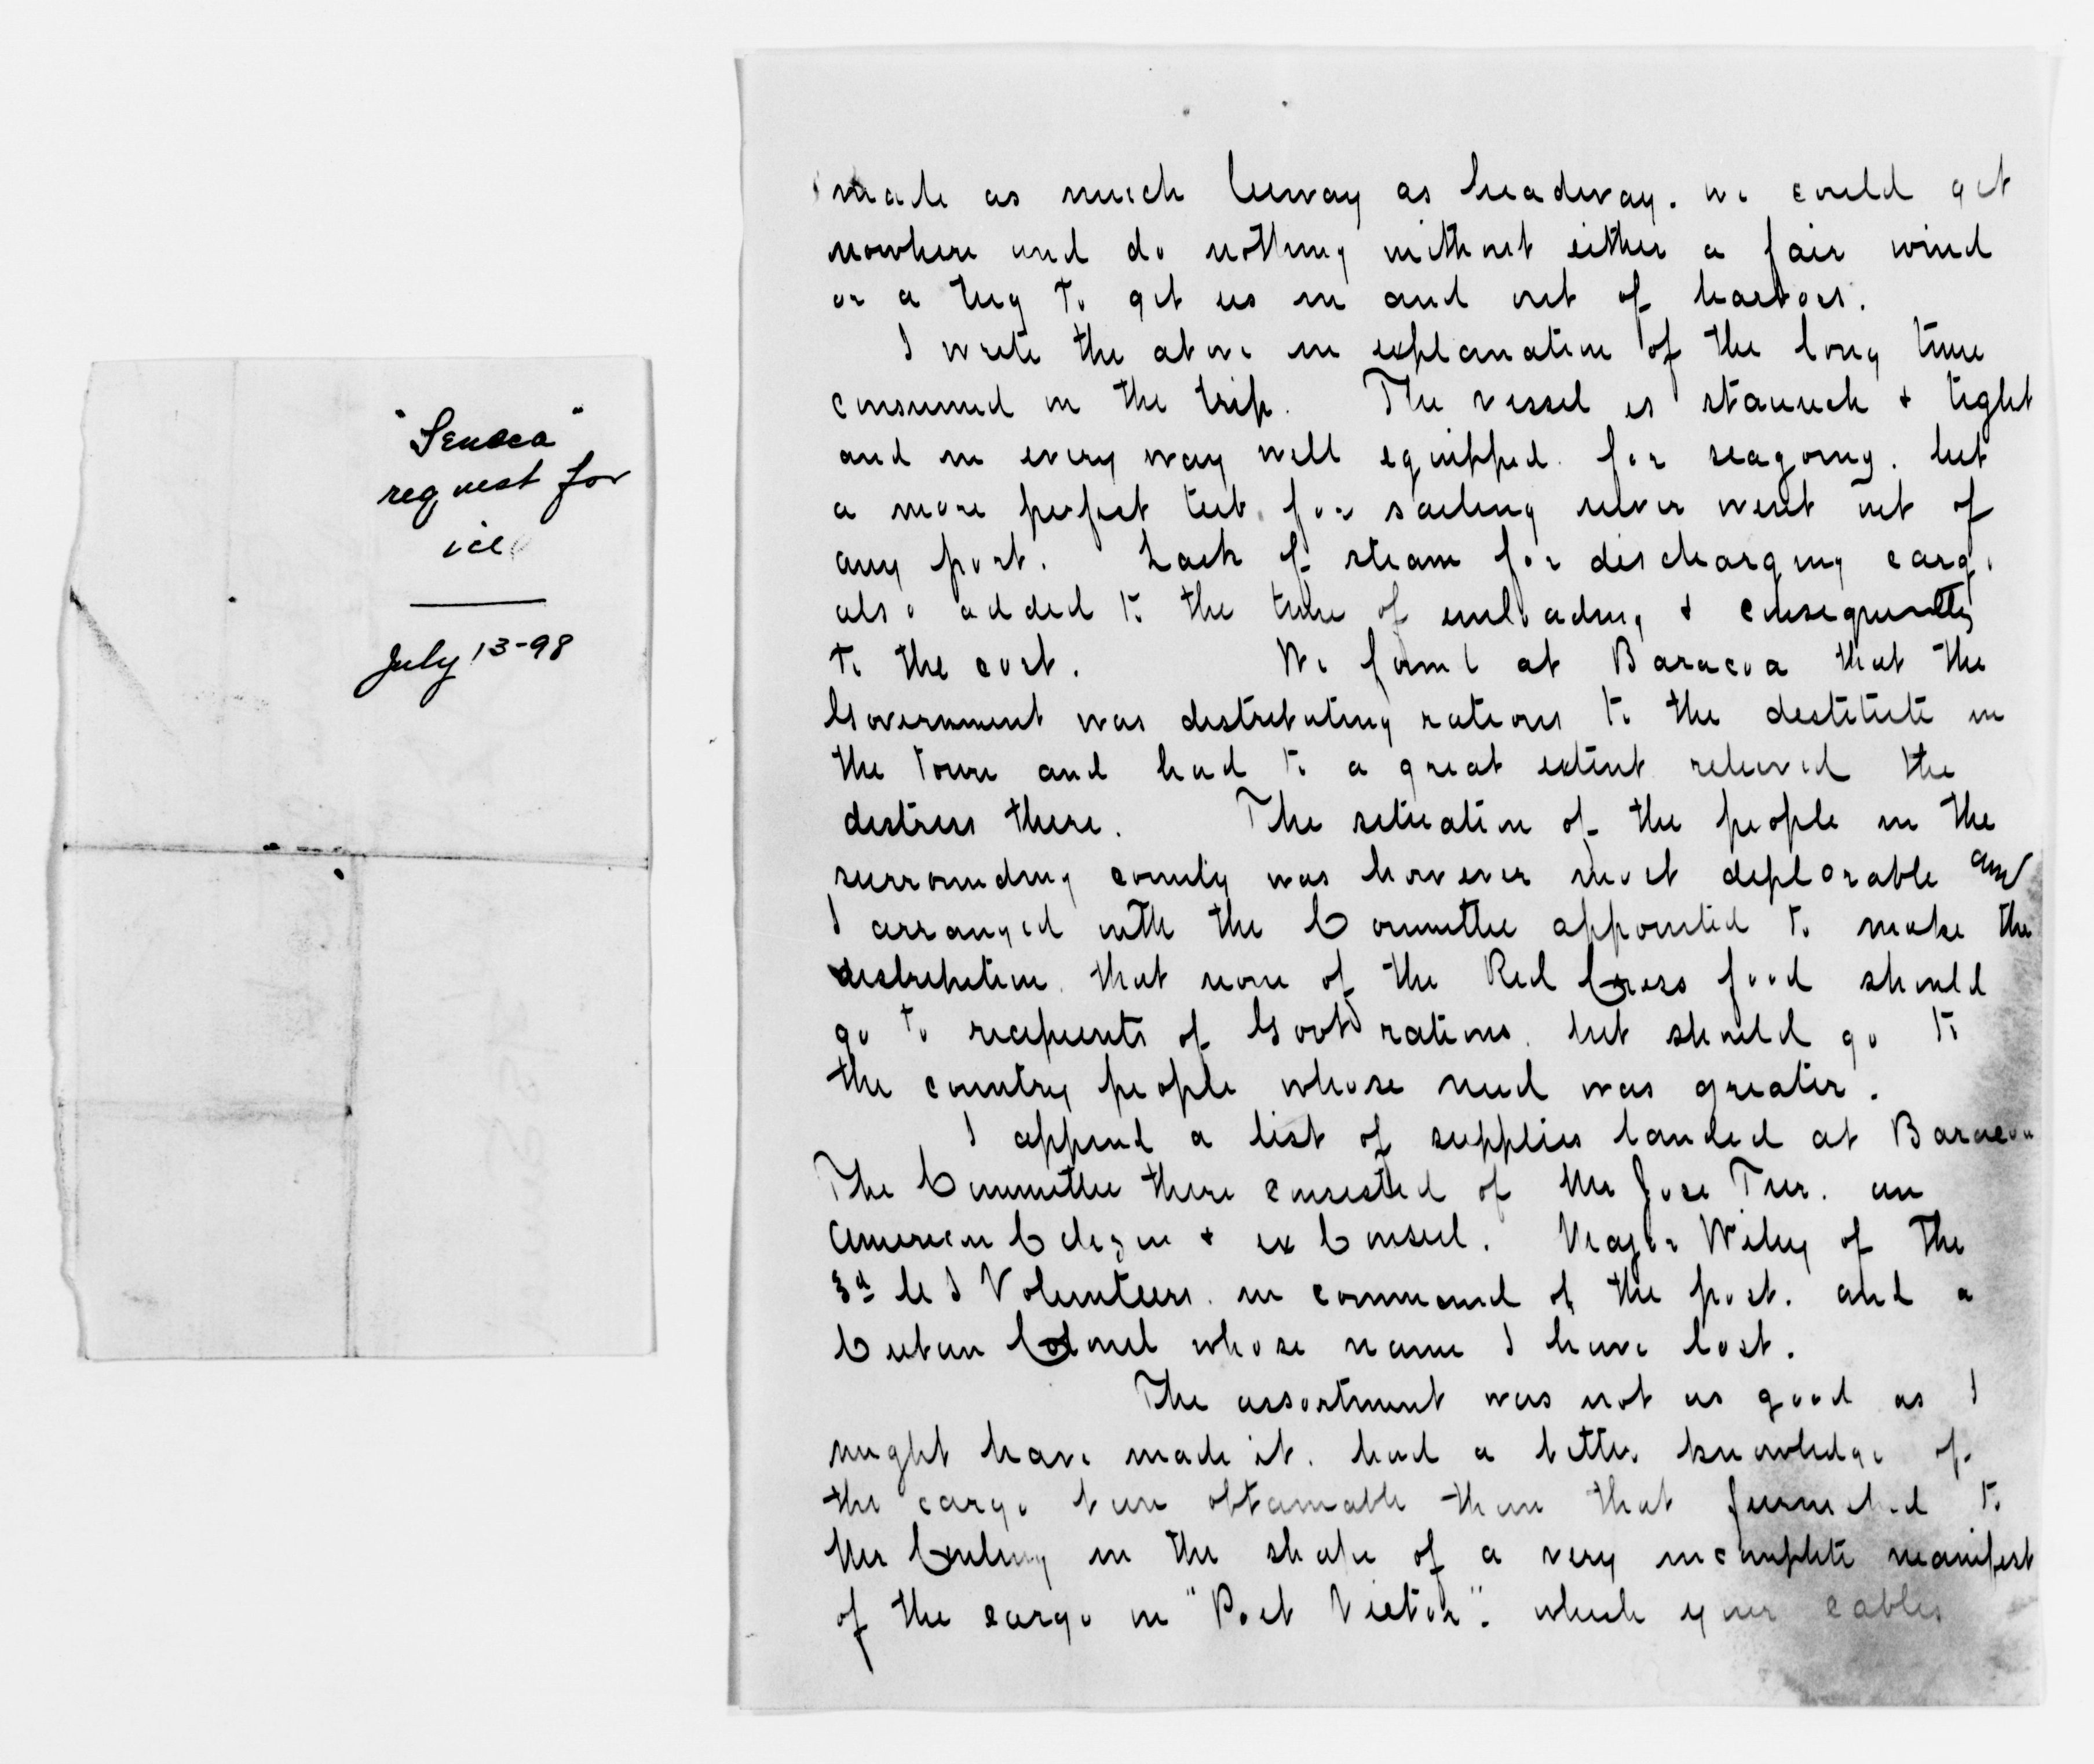 "Seneca"
request for
ice
July 13-98
made as much leeway as headway. we could get
nowhere and do nothing without either a fair wind
or a tug to get us in and out of harbors.
I write the above in explanation of the long time
consumed in the trip. The vessel is staunch & tight
and in every way well equipped for seagoing. but
a more perfect tub for sailing never went out of
any port. Lack of steam for discharging cargo
also added to the time of unloading & consequently
to the cost. We found at Baracoa that the
Government was distributing rations to the destitute in
the town and had to a great extent relieved the
distress there. The situation of the people in the
surrounding county was however most deplorable and
I arranged with the Committee appointed to make the
distribution that none of the Red Cross food should
go to recipients of Govt rations. but should go to
the country people whose need was greater.
I append a list of supplies landed at Baracoa
The Committee there consisted of Mr Jose Tur. an
American Citizen & ex Consul. Major Wiley of the
3d U S Volunteers. in command of the post. and a
Cuban Colonel whose name I have lost.
The assortment was not as good as I
might have made it. had a better knowledge of
the cargo been obtainable than that furnished to
Mr in the shape of a very incomplete manifest
of the cargo in "Port Victor". which your cables